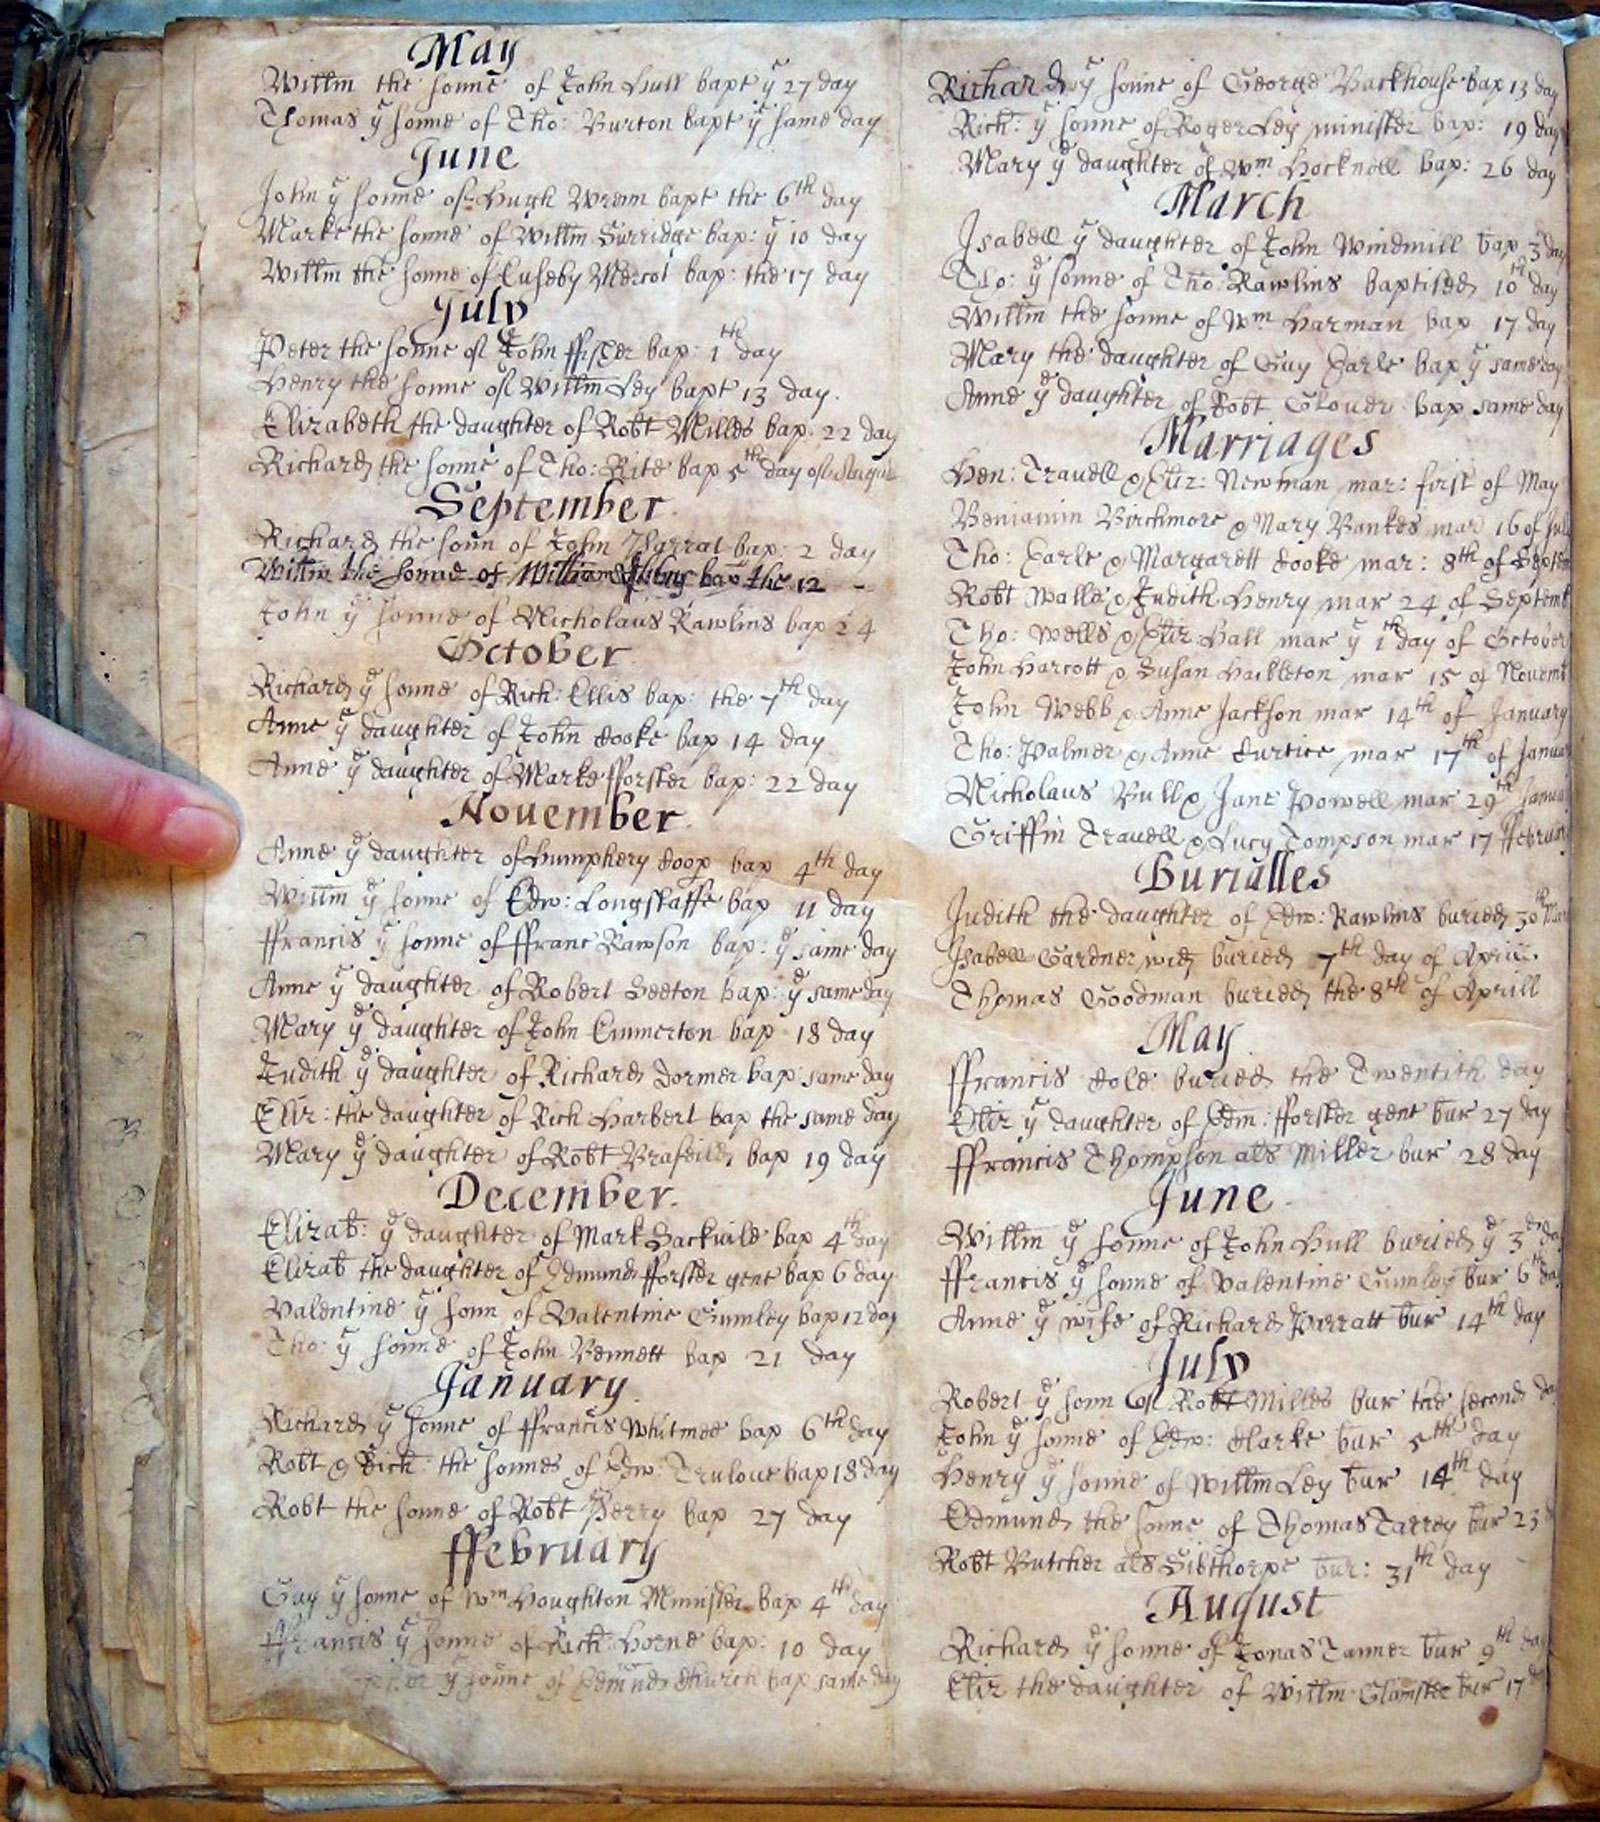 May
Willm the sonne of John Hull bapt yͤ 27 day
Thomas yͤ sonne of Tho: Burton bapt yͤ same day
June
John yͤ sonne of Hugh Wrenn bapt the 6th day
Marke the sonne of Willm Surridge bap: yͤ 10 day
Willm the sonne of Euseby Mercot bap: the 17 day
July
Peter the sonne of John ffisher bap: 1th day
Henry the sonne of Willm Ley bapt 13 day.
Elizabeth the daughter of Robt Milles bap: 22 day
Richard the sonne of Tho: Rite bap 5th day of August
September
Richard the sonn of John Parrat bap: 2 day
Willm the sonne of William bap the 12
John yͤ sonne of Nicholaus Rawlins bap 24
October
Richard yͤ sonne of Rich: Ellis bap: the 7th day
Anne yͤ daughter of John Cooke bap 14 day
Anne yͤ daughter of Marke fforster bap: 22 day
November
Anne yͤ daughter of Humphery Coop bap 4th day
Willm yͤ sonne of Edw: Longstaffe bap 11 day
ffrancis yͤ sonne of ffranc Rawson bap: yͤ same day
Anne yͤ daughter of Robert Seeton bap: yͤ same day
Mary yͤ daughter of John Emmerton bap 18 day
Judith yͤ daughter of Richard Dormer bap: same day
Eliz: the daughter of Rich: Harbert bap the same day
Mary yͤ daughter of Robt Brafeild bap 19 day
December
Elizab: yͤ daughter of Mark Sackvile bap 4th day
Elizab the daughter of Edmund fforster gent bap 6 day
Valentine yͤ sonn of Valentine Gumley bap 12 day
Tho: yͤ sonne of John Bennett bap 21 day
January
Richard yͤ sonne of ffrancis Whitmee bap 6th day
Robt & Rich: the sonnes of Edw: Trulove bap 18 day
Robt the sonne of Robt Perry bap 27 day
ffebruary
Guy yͤ sonne of Wm Houghton Minister bap 4th day
ffrancis yͤ sonne of Rich: Horne bap: 10 day
yͤ sonne of Edmund Church bap same day
Richard yͤ sonne of George Backhouse bap 13 day
Rich: yͤ sonne of Roger Ley minister bap: 19 day
Mary yͤ daughter of Wm Hocknell bap: 26 day
March
Isabell yͤ daughter of John Windmill bap 3 day
Tho: yͤ sonne of Tho: Rawlins baptised 10th day
Willm the sonne of Wm Harman bap 17 day
Mary the daughter of Guy Earle bap yͤ same day
Anne yͤ daughter of Robt Glover bap same day
Marriages
Hen: Travell & Eliz: Newman mar: first of May
Beniamin Birchmore & Mary Bankes mar 16 of July
Tho: Earle & Margarett Cooke mar: 8th of Septem
Robt Walle & Judith Henry mar 24 of Septemb
Tho: Wells & Eliz: Hall mar yͤ 1th day of October
John Harcott & Susan Hackleton mar 15 of Novemb
John Webb & Anne Jackson mar 14th of January
Tho: Palmer & Anne Curtice mar 17th of January
Nicholaus Bull & Jane Powell mar 29th January
Griffin Travell & Lucy Tompson mar 17 ffebruary
Burialles
Judith the daughter of Edw: Rawlins buried 30th Mar
Isabell Gardner wid buried 7th day of Aprill
Thomas Goodman buried the 8th of Aprill
May
ffrancis Cole buried the Twentith day
Eliz yͤ daughter of Edm: fforster gent bur 27 day
ffrancis Thompson als Miller bur 28 day
June
Willm yͤ sonne of John Hull buried yͤ 3d day
ffrancis yͤ sonne of Valentine Gumley bur 6th day
Anne yͤ wife of Richard Parratt bur 14th day
July
Robert yͤ sonn of Robt Milles bur the second day
John yͤ sonne of Edw: Clarke bur 5th day
Henry yͤ sonne of Willm Ley bur 14th day
Edmund the sonne of Thomas Tarrey bur 23
Robt Butcher als Sibthorpe bur: 31th day
August
Richard yͤ sonne of Jonas Tanner bur 9th day
Eliz the daughter of Willm Glamster bur 17 day